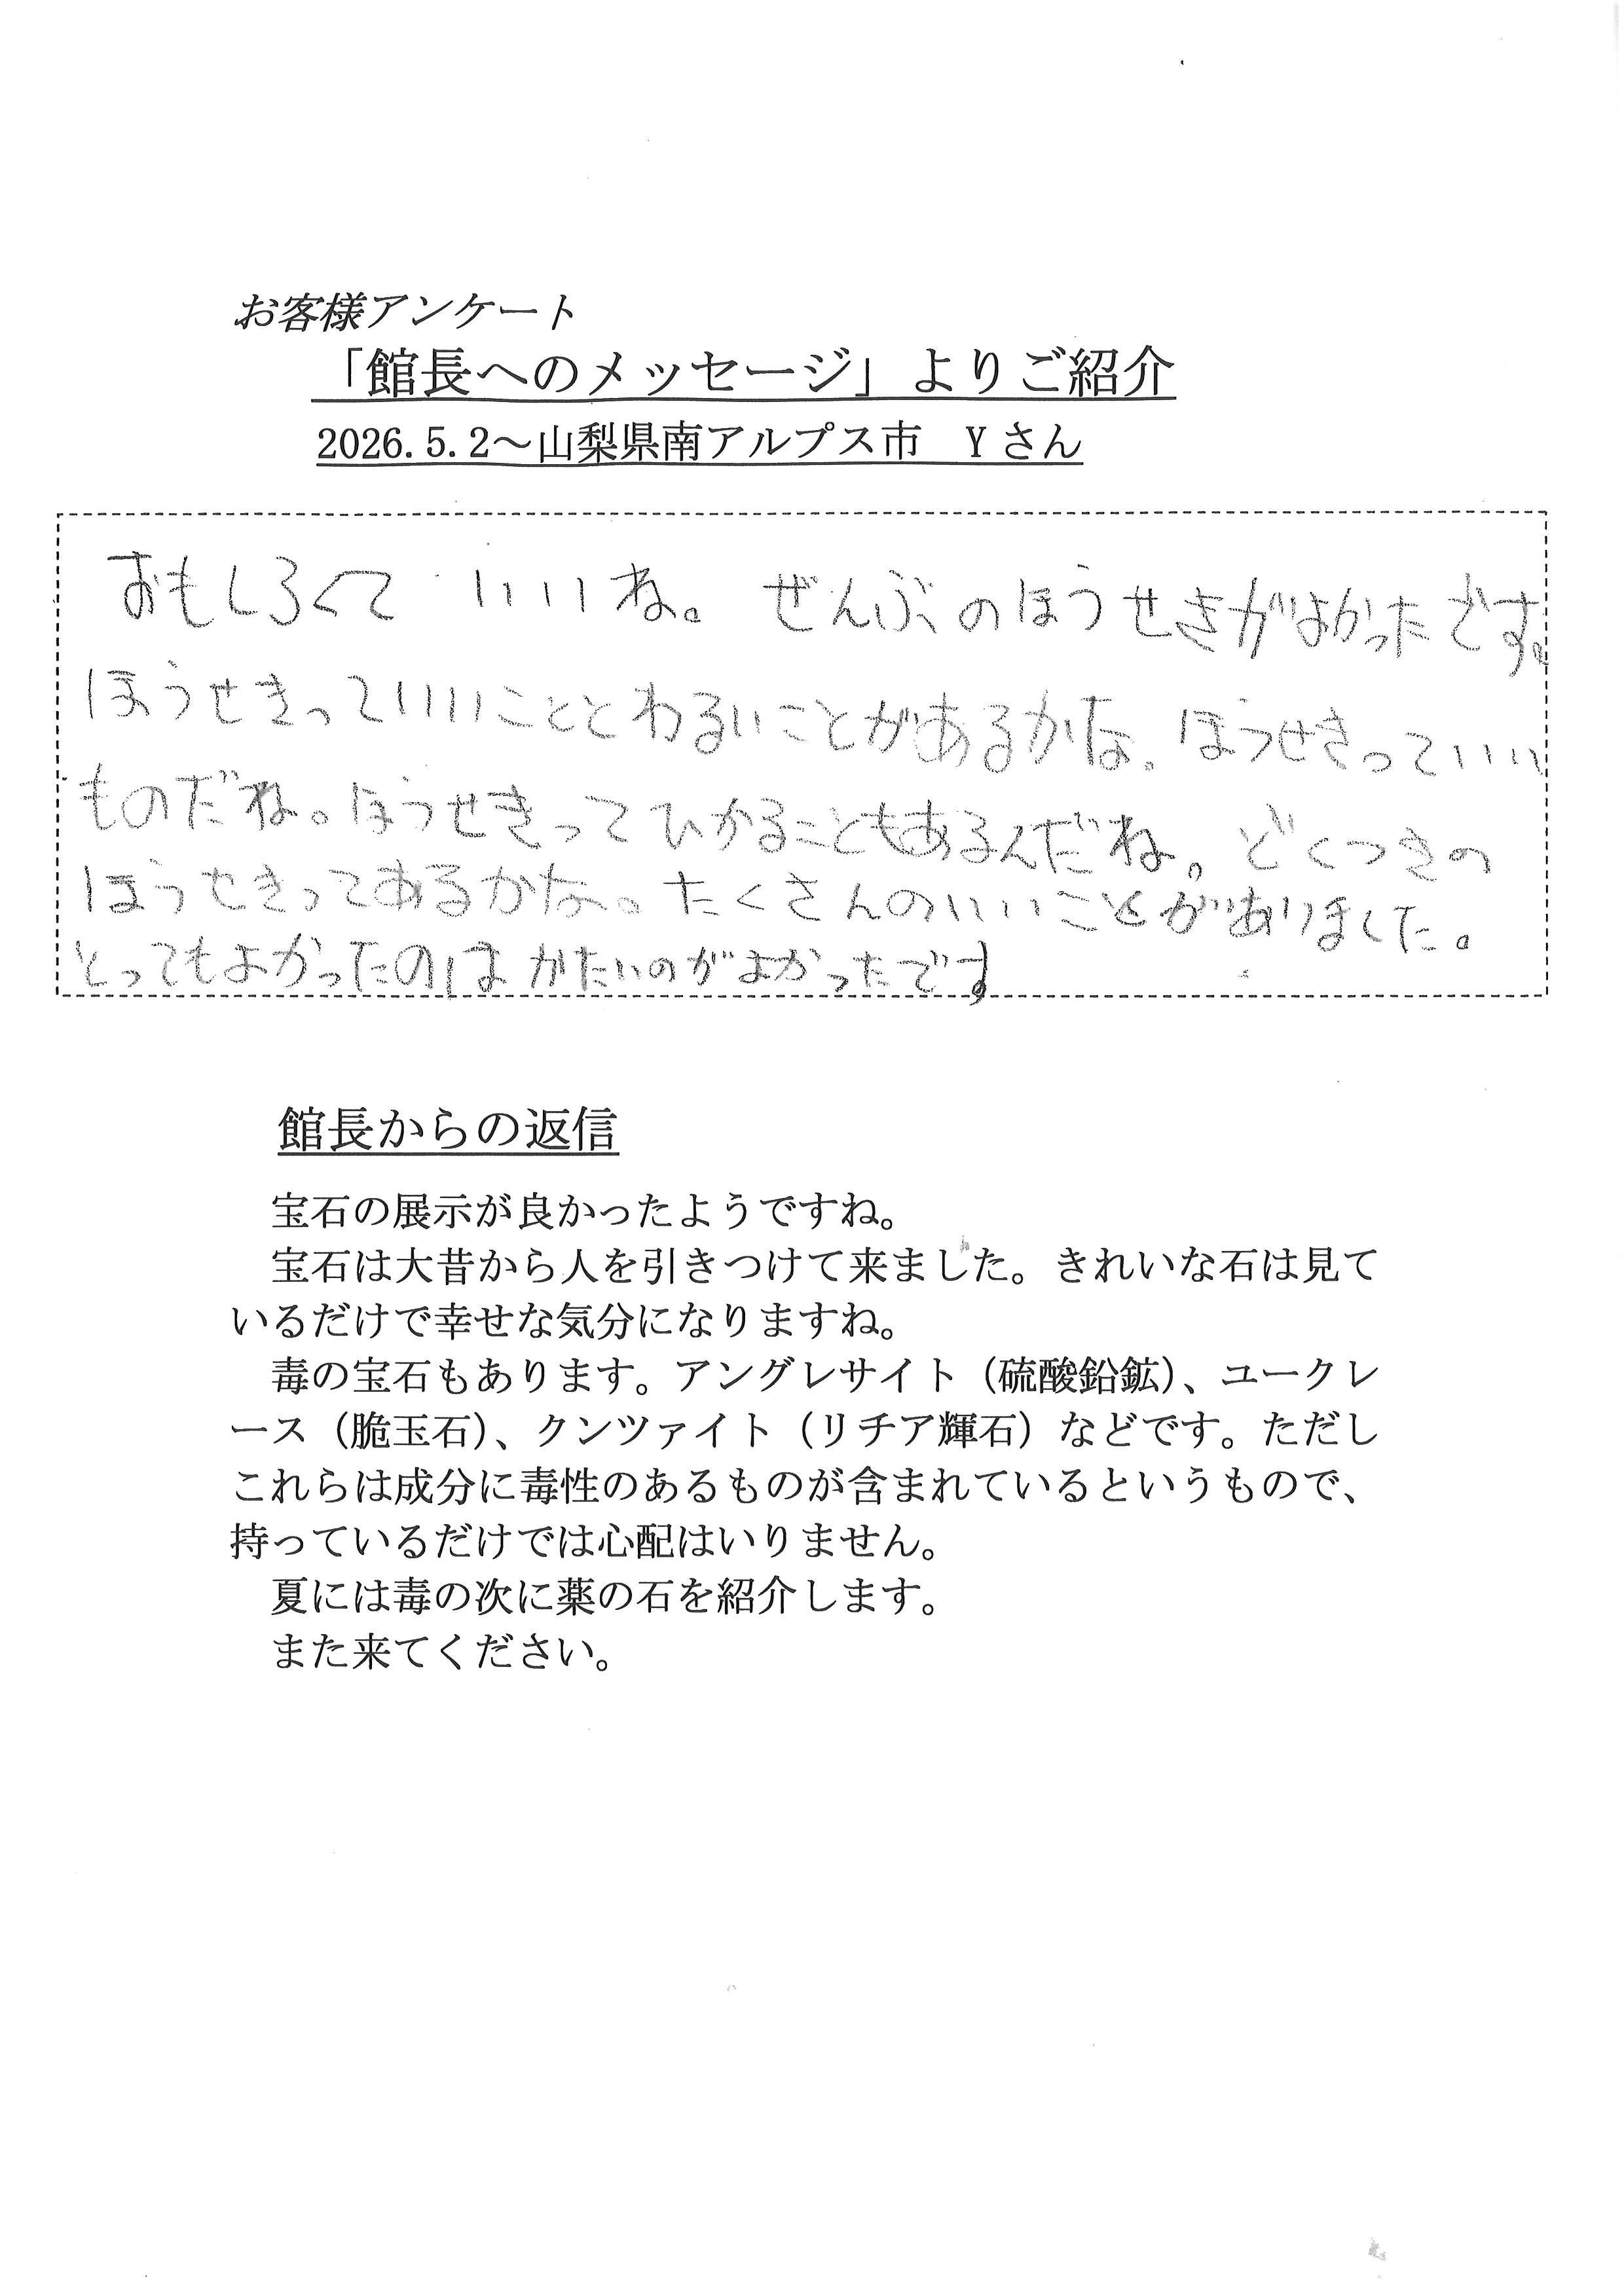 お客様アンケート
「館長へのメッセージ」よりご紹介
2026.5.2～山梨県南アルプス市　Yさん
おもしろくて いいね。ぜんぶのほうせきがよかったです。
ほうせきっていいこととわるいことがあるかな。ほうせきっていい
ものだね。ほうせきってひかることもあるんだね。どくつきの
ほうせきってあるかな。たくさんのいいことがありました。
とってもよかったのはかたいのがよかったです
館長からの返信
宝石の展示が良かったようですね。
宝石は大昔から人を引きつけて来ました。きれいな石は見て
いるだけで幸せな気分になりますね。
毒の宝石もあります。アングレサイト（硫酸鉛鉱）、ユークレ
ース（脆玉石）、クンツァイト（リチア輝石）などです。ただし
これらは成分に毒性のあるものが含まれているというもので、
持っているだけでは心配はいりません。
夏には毒の次に薬の石を紹介します。
また来てください。